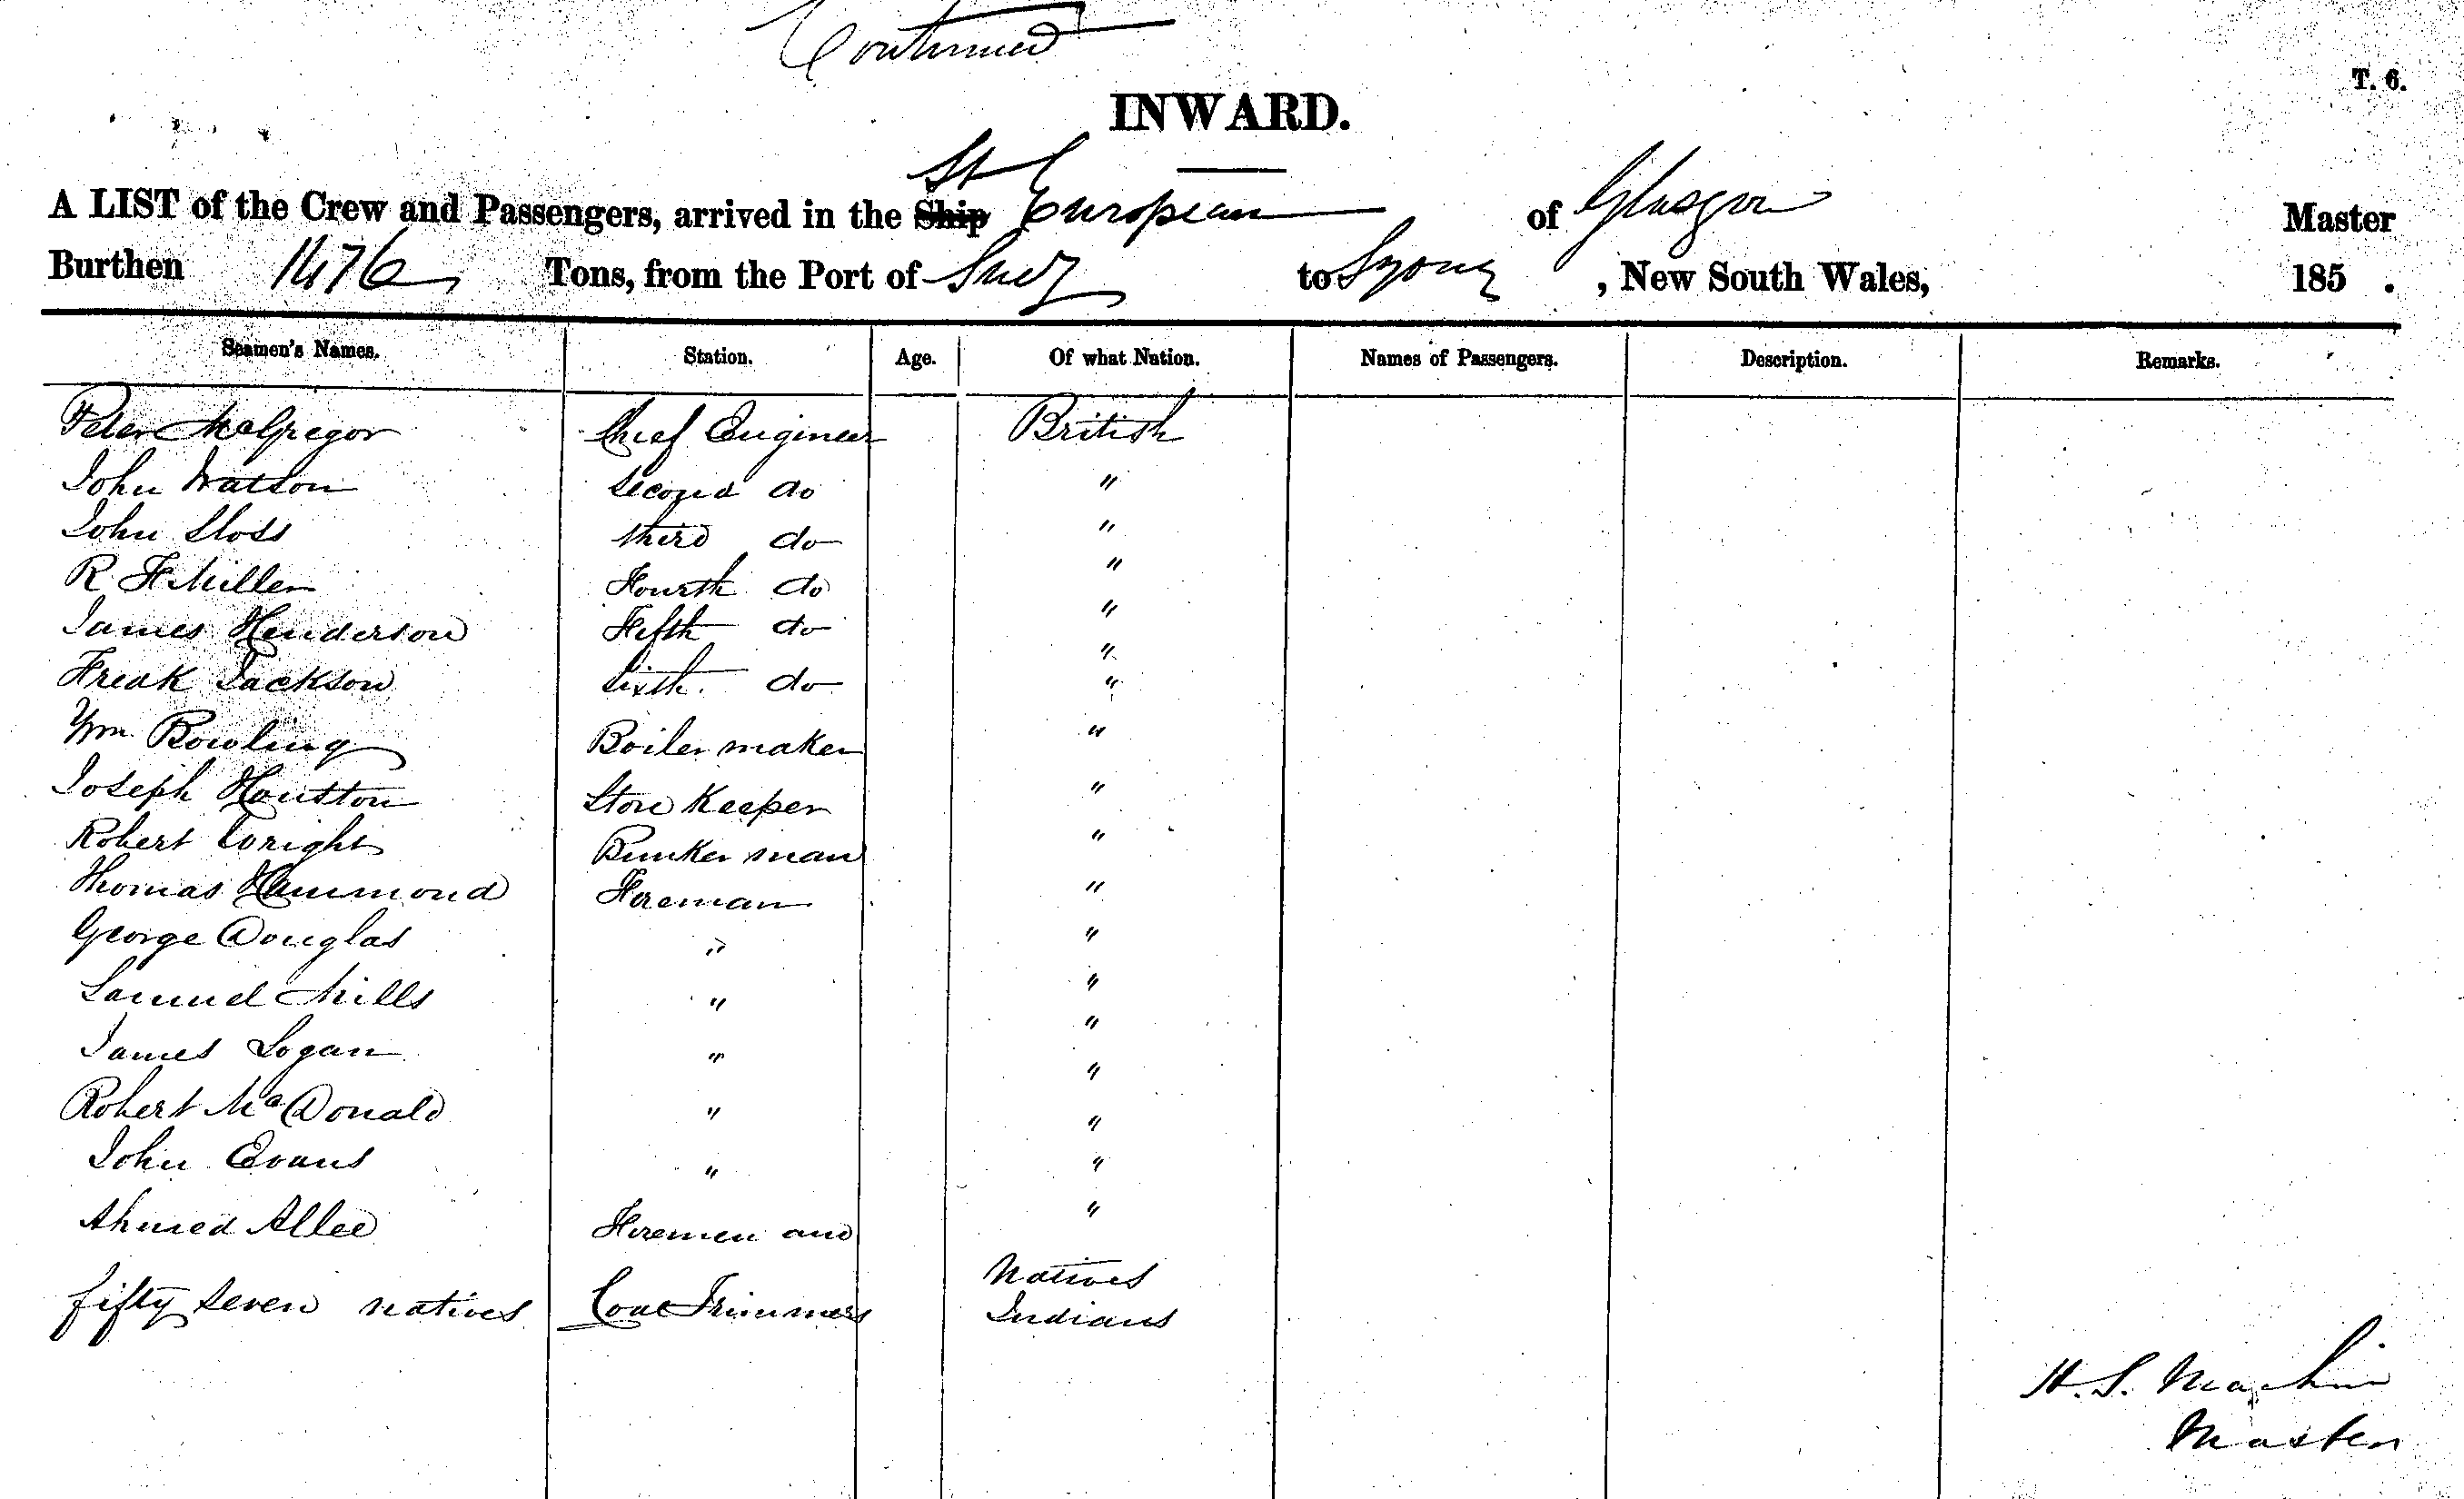 Continued
INWARD.
T. 6.
St
A LIST of the Crew and Passengers, arrived in the Ship European of Glasgow Master
Burthen 1476 Tons, from the Port of Suez to Sydney, New South Wales, 185 .
Seamen's Names. Station. Age. Of what Nation. Names of Passengers. Description. Remarks.
Peter McGregor Chief Engineer British
John Watson Second do "
John Sloss third do "
R F Miller Fourth do "
James Henderson Fifth do "
Freak Jackson Sixth do "
"
Wm Bowling Boiler maker "
Joseph Houston Store Keeper "
Robert Wright Bunker man "
Thomas Hammond Fireman "
George Douglas " "
Samuel Mills " "
James Logan " "
" 
Robert McDonald " "
John Evans " "
Ahmed Allee Firemen and "
fifty seven natives Coal Trimmers Natives
Indians
H. S. Machin
Master